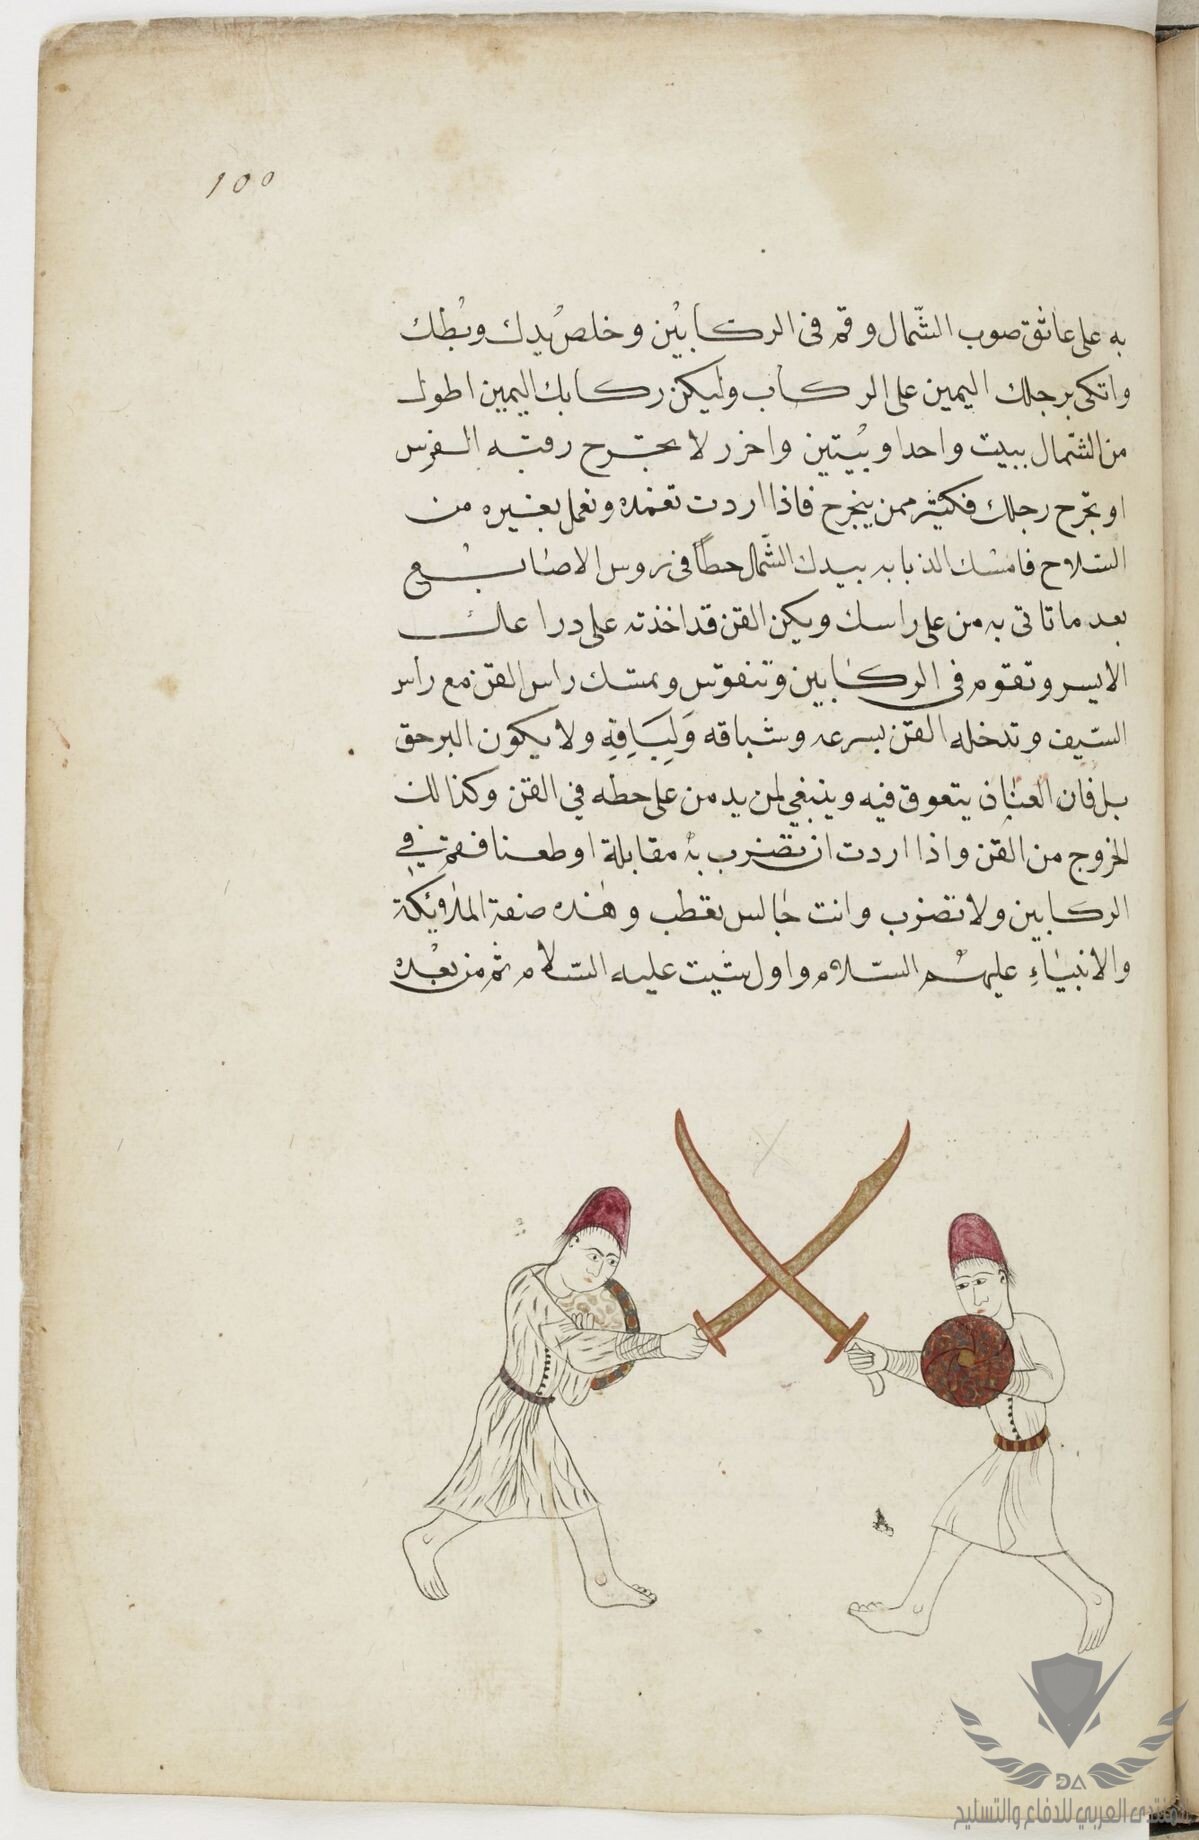 100
به على عاتق صوب الشّمال وقم فى الركابين وخلص يدك وبطك
واتكى برجلك اليمين على الركاب وليكن ركابك اليمين اطول
من الشمال ببيت واحد او بيتين واحزر لا تجترح رقبه الفرس
او تجرح رجلك فكثير ممن ينجرح فاذا اردت تغمده وتعمل بغيره من
السلاح فامسك الذبابه بيدك الشّمال حطاً فى روس الاصابع
بعد ما تاتى به من على راسك ويكن القرن قد اخذته على دراعك
الايسر وتقوم فى الركابين وتتقوس وتمسك راس القرن مع راس
السيف وتدخله القرن بسرعه وشباقه وَلِبَاقِةِ ولا يكون
بل فان يتعوق فيه وينبغي لمن يدمن على حطه في القرن وكذالك
الخروج من القرن واذا اردت ان تضرب به مقابلة او طعنا فقم في
الركابين ولا تضرب وانت جالس بقطب وهذه صنعة الملايكة
والانبياءِ عليهم السّلام واول شيت عليه السلام ثم من بعده
DA
المنتدى العربي للدفاع والتسليح